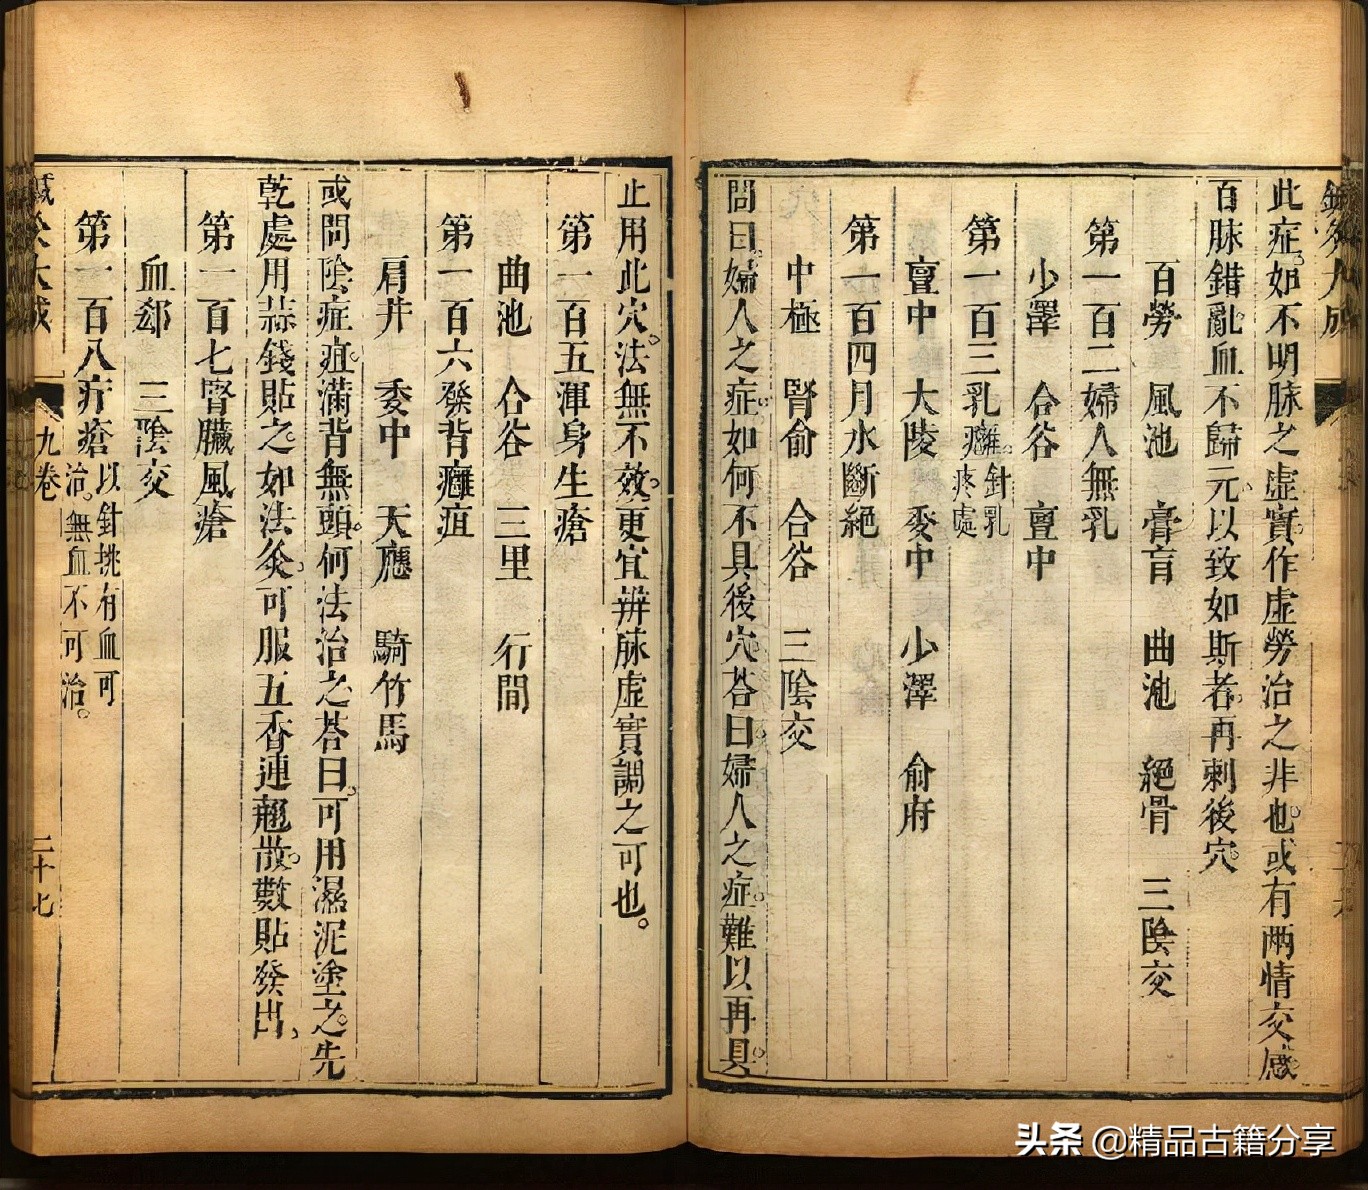 鍼灸大成
此症。如不明脉之虛實。作虛勞治之非也。或有兩情交感
百脉錯亂。血不歸元。以致如斯者。再刺後穴。
百勞　風池　膏肓　曲池　絕骨　三陰交
第一百二婦人無乳
少澤　合谷　亶中
第一百三乳癰。針乳疼處
亶中　大陵　委中　少澤　俞府
第一百四月水斷絕
中極　腎俞　合谷　三陰交
問曰。婦人之症。如何不具後穴。荅曰。婦人之症。難以再具。
止用此穴。法無不效。更宜辨脉虛實調之可也。
第一百五渾身生瘡
曲池　合谷　三里　行間
第一百六發背癰疽
肩井　委中　天應　騎竹馬
或問陰症疽。滿背無頭。何法治之。荅曰。可用濕泥塗之。先
乾處用蒜錢貼之。如法灸。可服五香連翹散。數貼發出、
第一百七腎臟風瘡
血郄　三陰交
第一百八疔瘡以針挑有血可治。無血不可治。
鍼灸大成
九卷
二十七
头条 @精品古籍分享